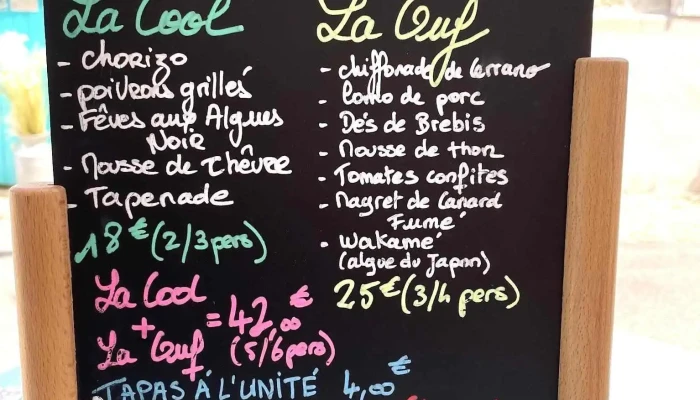 La Cool
- chorizo
- poivrons grillés
- Fêves aux Algues
Noir
- Mousse de Chêvre
- Tapenade
18€ (2/3 pers)
La Ouf
- chiffonade de Serrano
- Lomo de porc
- Dés de Brebis
- Mousse de thon
- Tomates confites
- Magret de Canard
Fumé
- Wakamé
(algue du Japon)
25€ (3/4 pers)
La Cool
+
La Ouf
=42,00€
(5/6 pers)
TAPAS À L'UNITÉ 4,00€